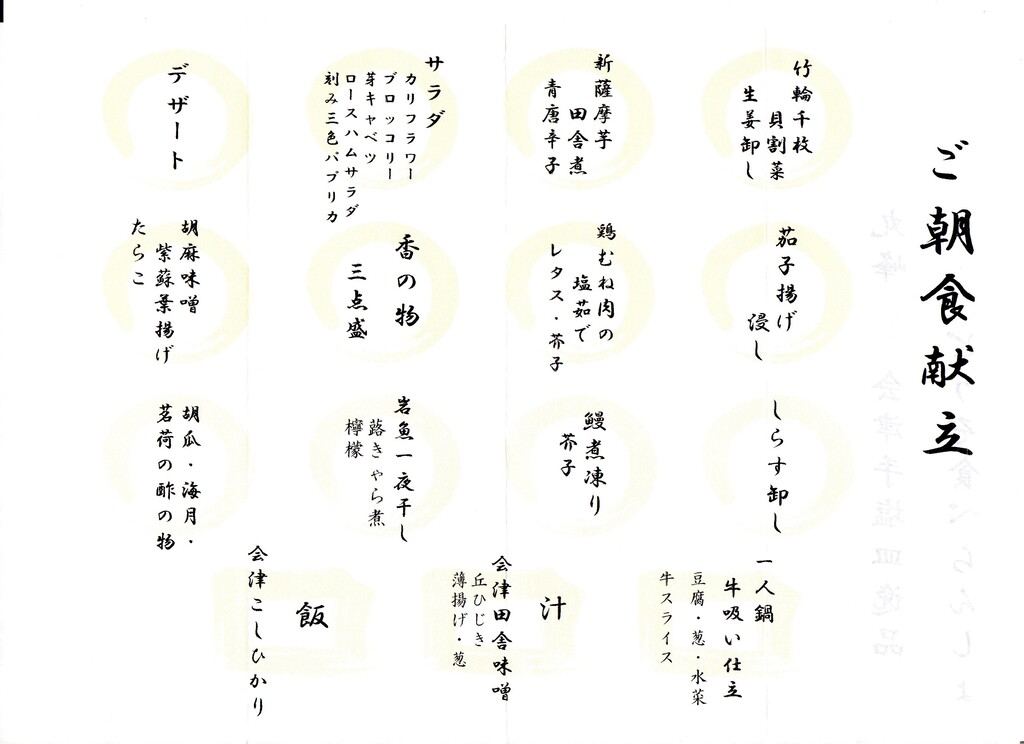 ご朝食献立
竹輪千枚
貝割菜
生姜卸し
茄子揚げ
浸し
しらす卸し
一人鍋
牛吸い仕立
豆腐・葱・水菜
牛スライス
新薩摩芋
田舎煮
青唐辛子
鶏むね肉の
塩茹で
レタス・芥子
鰻煮凍り
芥子
汁
会津田舎味噌
丘ひじき
薄揚げ・葱
サラダ
カリフラワー
ブロッコリー
芽キャベツ
ロースハムサラダ
刻み三色パプリカ
香の物
三点盛
岩魚一夜干し
蕗きゃら煮
檸檬
飯
会津こしひかり
デザート
胡麻味噌
紫蘇葉揚げ
たらこ
胡瓜・海月・
茗荷の酢の物